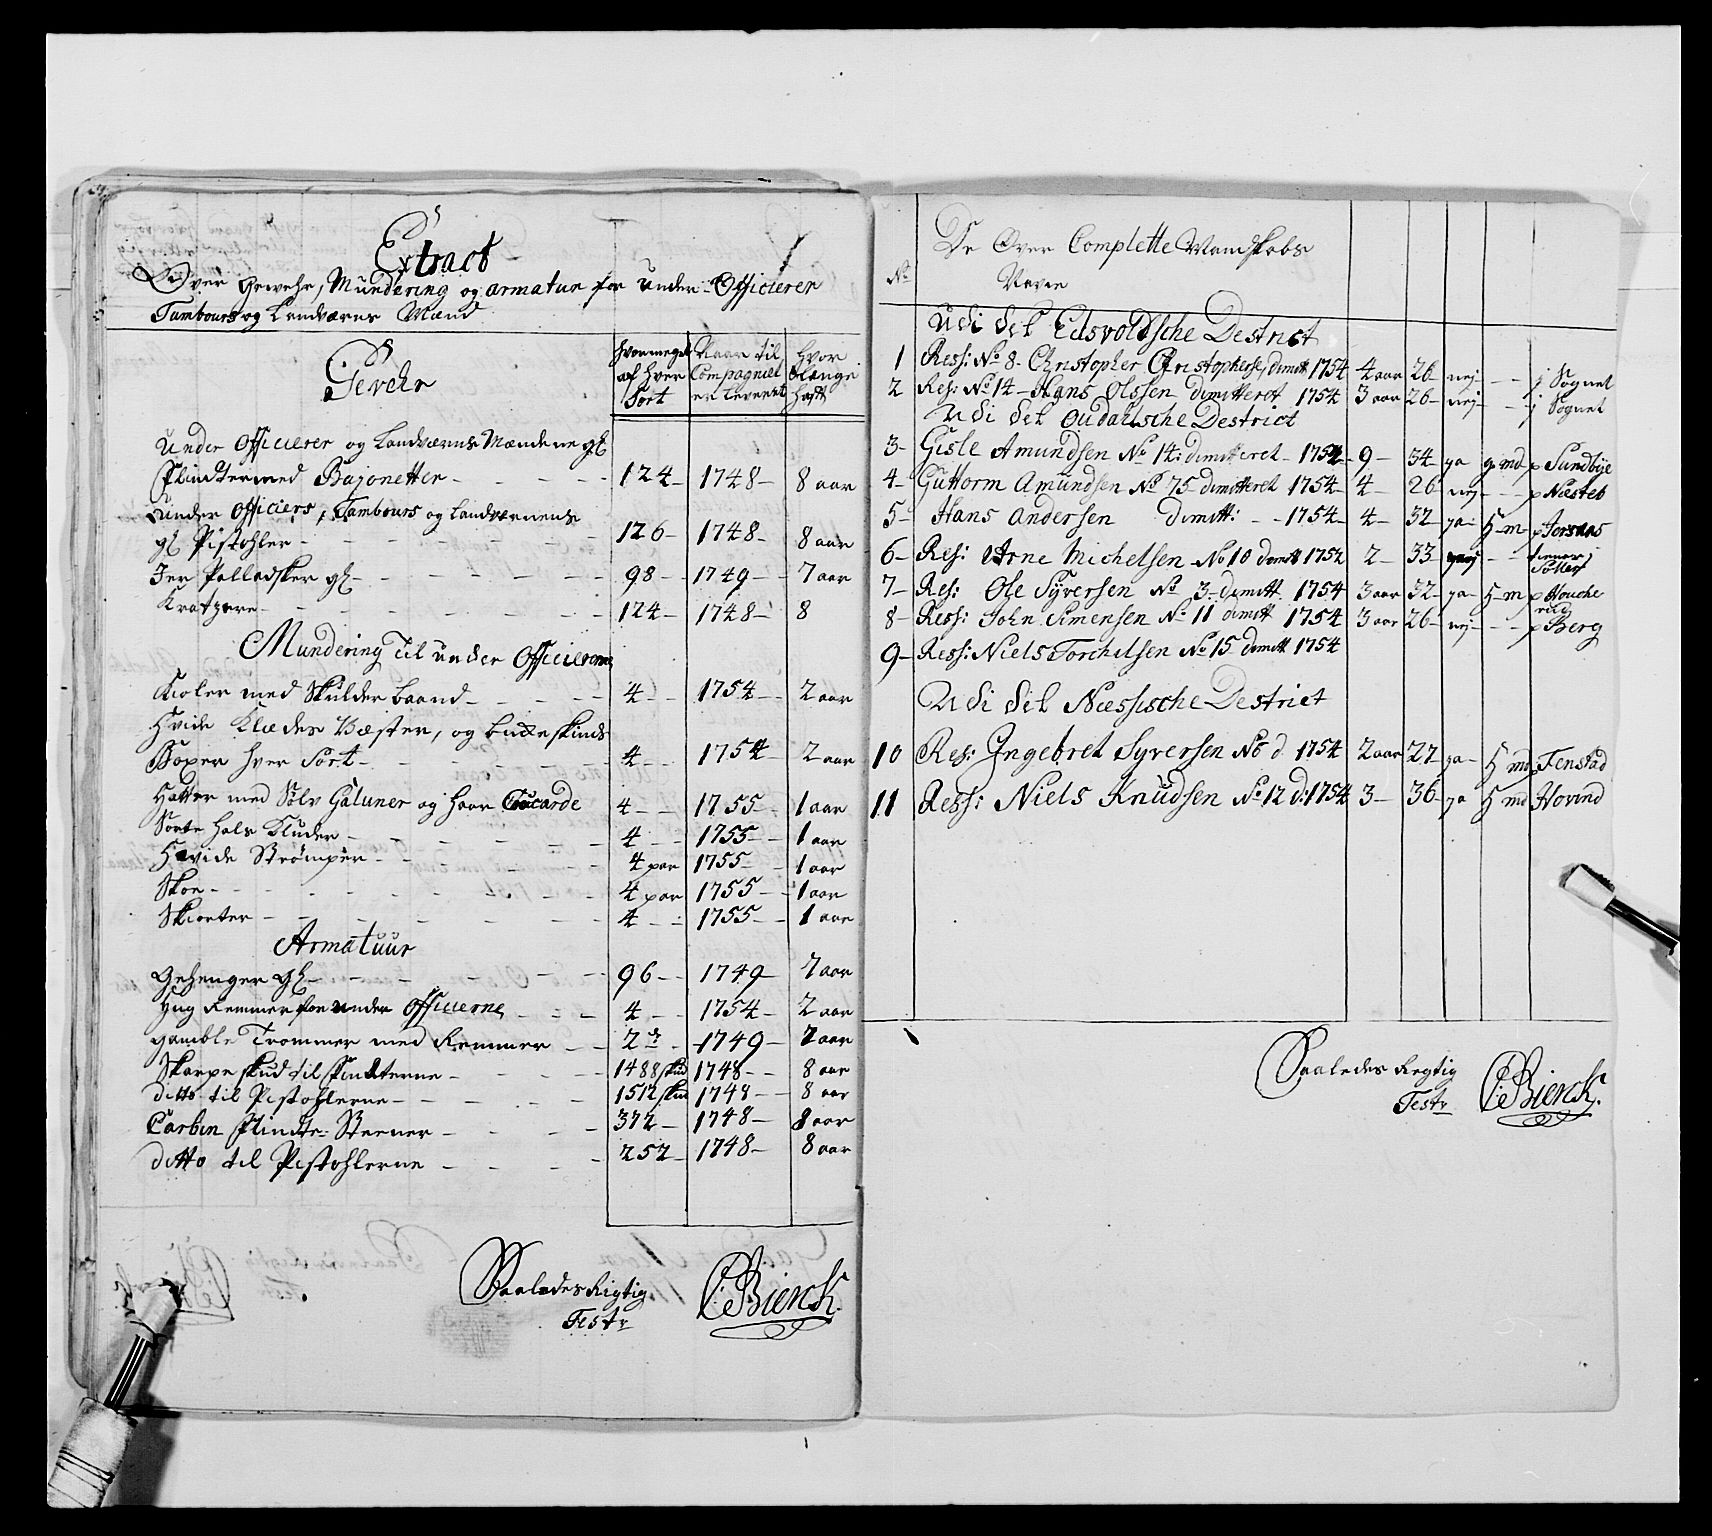 Extract
Over Gewehr, Mundering og armatur for Under Officierer
Tambours og Landværns Mænd
Gevehr
hvormeget af hver Sort
Naar til Compagniet er leveret
Hvor længe haft
Under Officierer og Landværns Mændene gl
Flindter med Bajonetter - - - - 124 - 1748 - 8 aar
Under Officiers, Tambours og Landværnens
gl Pistohler - - - - 126 - 1748 - 8 aar
Jer Pallasker gl - - - - 98 - 1749 - 7 aar
Kratzere - - - - 124 - 1748 - 8
Mundering til under Officierne
Kioler med Skulder baand - - - - 4 - 1754 - 2 aar
Hvide Klædes Væster, og bukkeskinds
Boxer hver Sort - - - - 4 - 1754 - 2 aar
Hatter med Sølv Galuner og haar Cucarde 4 - 1755 - 1 aar
Sorte hals Kluder - - - - 4 - 1755 - 1 aar
Hvide Strømper - - - - 4 par 1755 - 1 aar
Skoe - - - - 4 par 1755 - 1 aar
Skiorter - - - - 4 - 1755 - 1 aar
Armatuur
Gehenger gl - - - - 96 - 1749 - 7 aar
Remmer for under Officierne - - - 4 - 1754 - 2 aar
gamble Trommer med Remmer - - 2 - 1749 - 7 aar
Skarpe skud til Flindterne - - - 1488 skud 1748 - 8 aar
ditto til Pistohlerne - - - - 1512 skud 1748 - 8 aar
Carbin Flindte Steener - - - 372 - 1748 - 8 aar
ditto til Pistohlerne - - - - 252 - 1748 - 8 aar
Saaledes Rigtig
Test
CBierck.
No
De Over Complette Mandskabs
Navne
Udi det Edsvoldsche Destrict
1 Ress: No 8 - Christopher Christophers: dimitt 1754 4 aar 26 - nej - - j Sognet
2 Res: No 14 - Hans Olssen dimitteret 1754 3 aar 26 - nej - - j Sognet
Udi det Oudalsche Destrict
3 - Gisle Amundsen No 14: dimitteret 1754 - 9 - 34 - ja g md p Sundbye
4 - Guttorm Amundsen No 75 dimitteret 1754 - 4 - 26 - nej - - p Næsteb
5 - Hans Andersen dimitt: - - 1754 - 4 - 32 - ja - 5 - m p
6 - Res: Arne Michelsen No 10 dimitt 1754 2 - 33 - - - tiener j
7 - Res: Ole Syversen No 3 - dimitt 1754 3 aar 32 - ja - 5 - m p Houche
rud
8 - Ress: John Simensen No 11 dimitt 1754 3 aar 26 - nej - - p Berg
9 - Ress: Niels Torchelsen No 15 dimitt 1754
Udi det Næssische Destrict
10 Res: Ingebret Syversen No 6 d 1754 2 aar 27 - ja - 5 md Fenstad
11 Ress: Niels Knudsen No 12 d: 1754 3 - 36 - ja 5 md Hovind
Saaledes Rigtig
Test
CBierck.